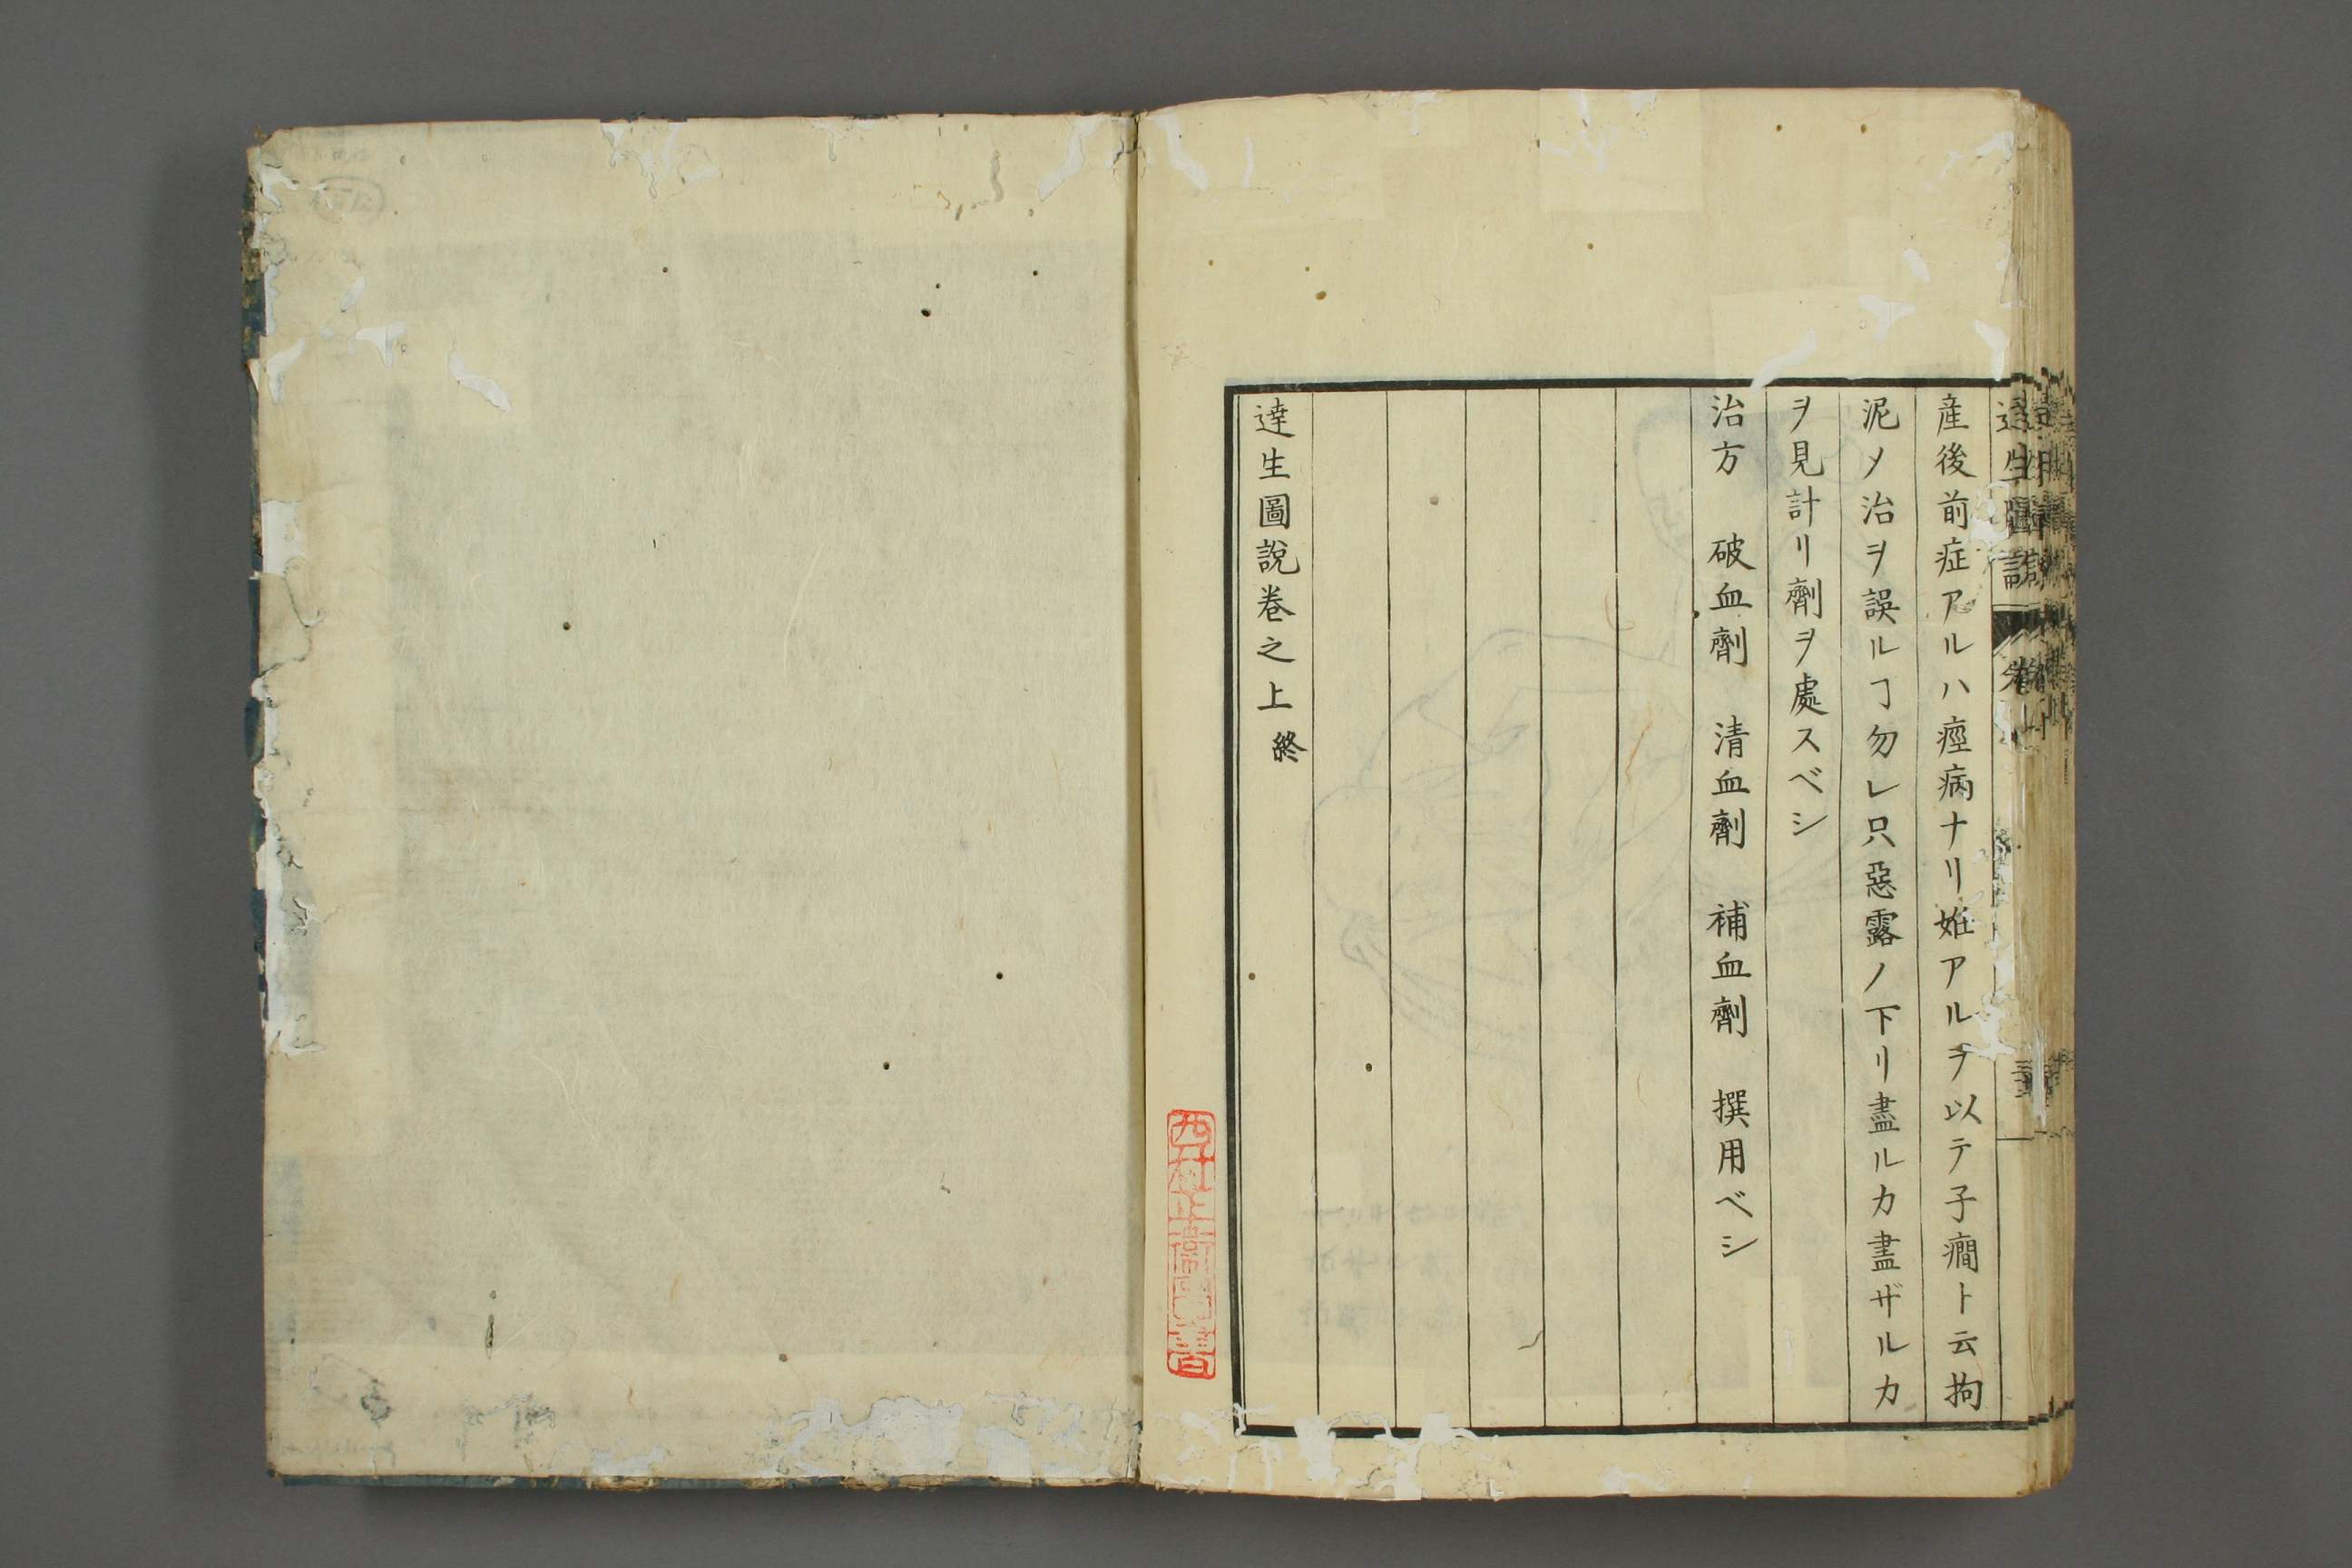 産後前症アルハ痙病ナリ姙アルヲ以テ子癇ト云拘
泥ノ治ヲ誤ルヿ勿レ只惡露ノ下リ盡ルカ盡ザルカ
ヲ見計リ劑ヲ處スベシ
治方　破血劑　清血劑　補血劑　撰用ベシ
達生圖說卷之上終